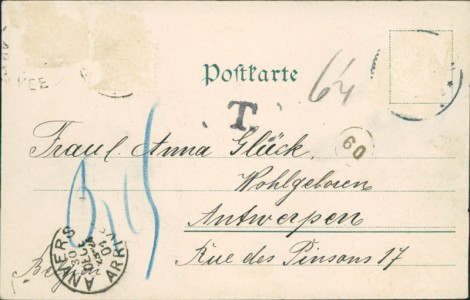 Postkarte
64
T.
60
Fraul. Anna Glück,
Wohlgeboren
Antwerpen
Rue des Pinsons 17
ANVERS
ARRIV